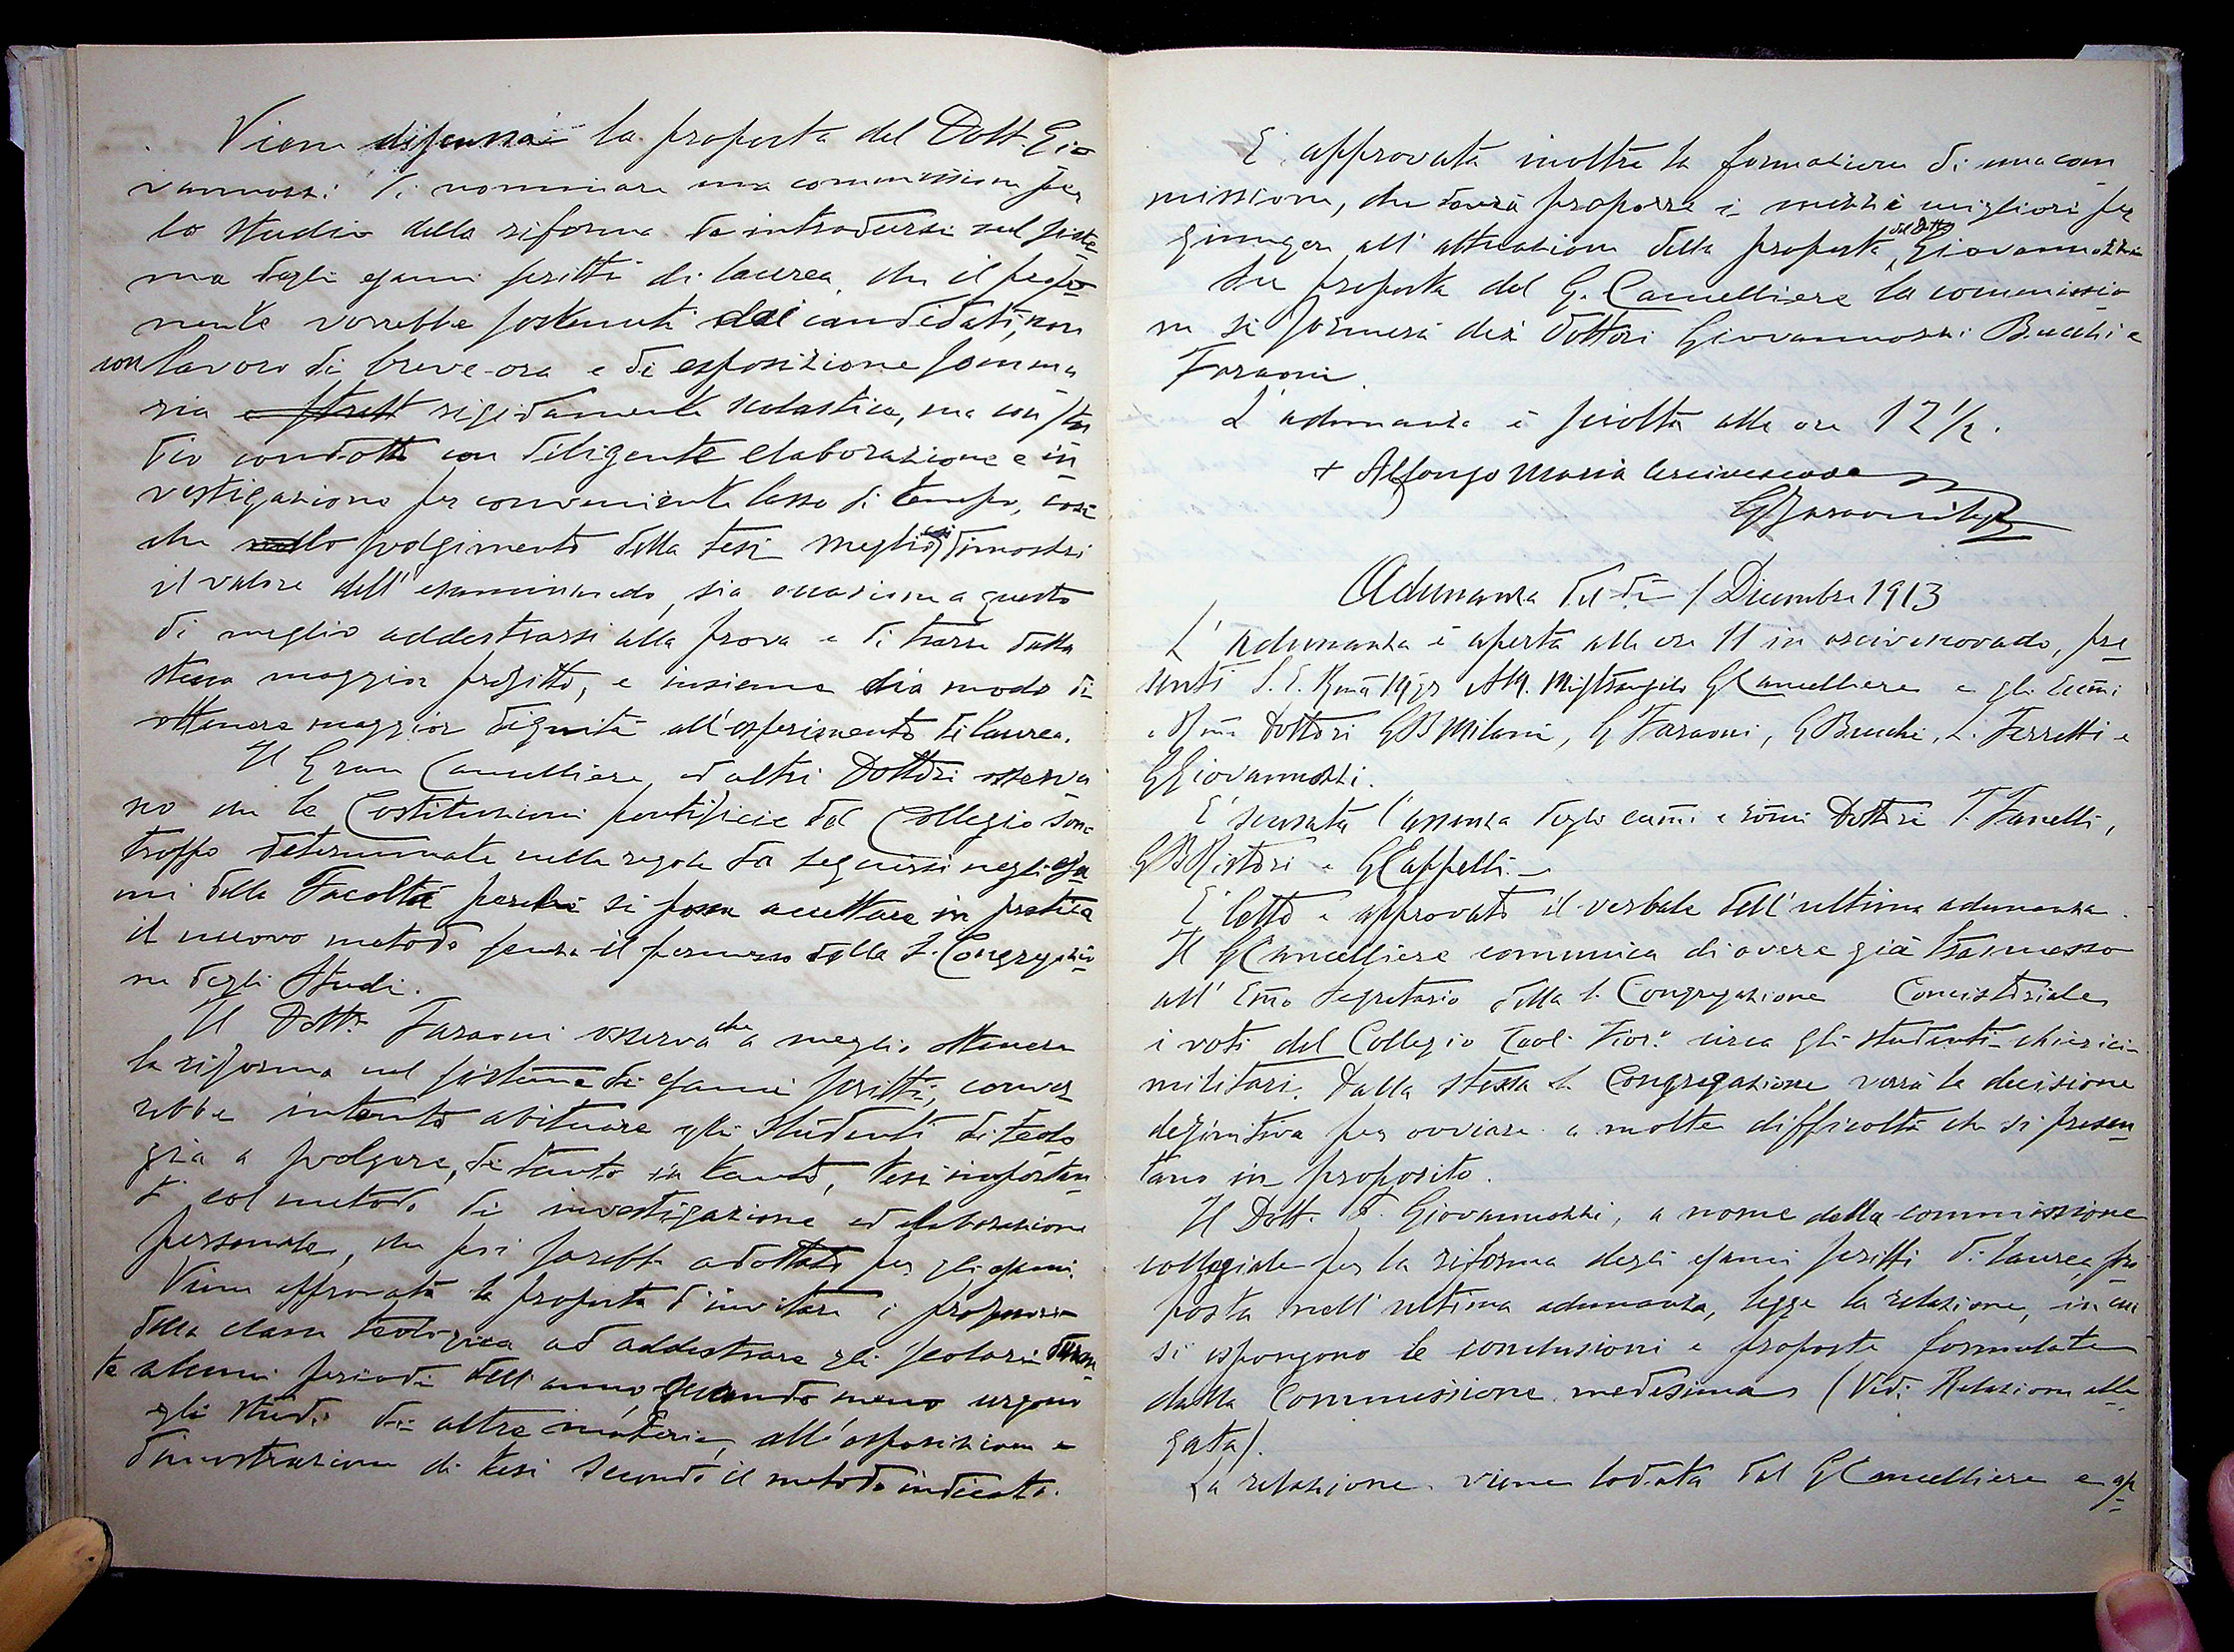 Viene discussa la proposta del Dott. Gio-
vannozzi di nominare una commissione per
lo studio della riforma da introdursi nel siste-
ma degli esami scritti di laurea, che il propo-
nente vorrebbe sostenuti dai candidati, non
con lavoro di breve ora e di esposizione somma-
ria rigidamente scolastica, ma con stu-
dio condotto con diligente elaborazione e in-
vestigazione per conveniente lasso di tempo, così
che lo svolgimento della tesi meglio dimostri
il valore dell'esaminando, sia occasione a questo
di meglio addestrarsi alla prova e di trarre dalla
stessa maggior profitto, e insieme dia modo di
ottenere maggior dignità all'esperimento di laurea.
Il Gran Cancelliere ed altri Dottori osserva-
no che le Costituzioni pontificie del Collegio sono
troppo determinate nelle regole da seguirsi negli esa-
mi della Facoltà perchè si possa accettare in pratica
il nuovo metodo senza il permesso della S. Congregazio-
ne degli Studi.
Il Dott. Faraoni osserva che a meglio ottenere
la riforma nel sistema di esami scritti, conver-
rebbe intanto abituare gli studenti di teolo-
gia a svolgere, di tanto in tanto, tesi importan-
ti col metodo di investigazione ed elaborazione
personale, che poi sarebbe adottato per gli esami.
Viene approvata la proposta d'invitare i professori
della classe teologica ad addestrare gli scolari duran-
te alcuni periodi dell'anno, quando meno urgono
gli studi di altre materie, all'esposizione e
dimostrazione di tesi secondo il metodo indicato.
E' approvata inoltre la formazione di una com-
missione, che dovrà proporre i mezzi migliori per
giungere all'attuazione della proposta del Dott. Giovannozzi
Su proposta del G. Cancelliere la commissio-
ne si formerà dei dottori Giovannozzi Bucchi e
Faraoni.
L'adunanza è sciolta alle ore 12 1/2.
+ Alfonso Maria Arcivescovo
G Faraoni
Adunanza del dì 1 Dicembre 1913
L'adunanza è aperta alle ore 11 in arcivescovado, pre-
senti S. E. Rma Mgr AM. Mistrangelo G Cancelliere e gli Eccmi
e Rmi Dottori GB Milani, G Faraoni, G Bucchi, L. Ferretti e
G Giovannozzi.
E' scusata l'assenza degli eccmi e rmi Dottori T. Fanelli,
GB Ristori e G Cappelli.
E' letto e approvato il verbale dell'ultima adunanza.
Il G Cancelliere comunica di avere già trasmesso
all' Emo Segretario della S. Congregazione Concistoriale
i voti del Collegio Teol. Fior.º circa gli studenti chierici-
militari. Dalla stessa S. Congregazione verrà la decisione
definitiva per ovviare a molte difficoltà che si presen-
tano in proposito.
Il Dott. Giovannozzi, a nome della commissione
collegiale per la riforma degli esami scritti di laurea, pro-
posta nell'ultima adunanza, legge la relazione, in cui
si espongono le conclusioni e proposte formulate
dalla Commissione medesima (Vedi Relazione alle-
gata).
La relazione viene lodata dal G Cancelliere e ap-